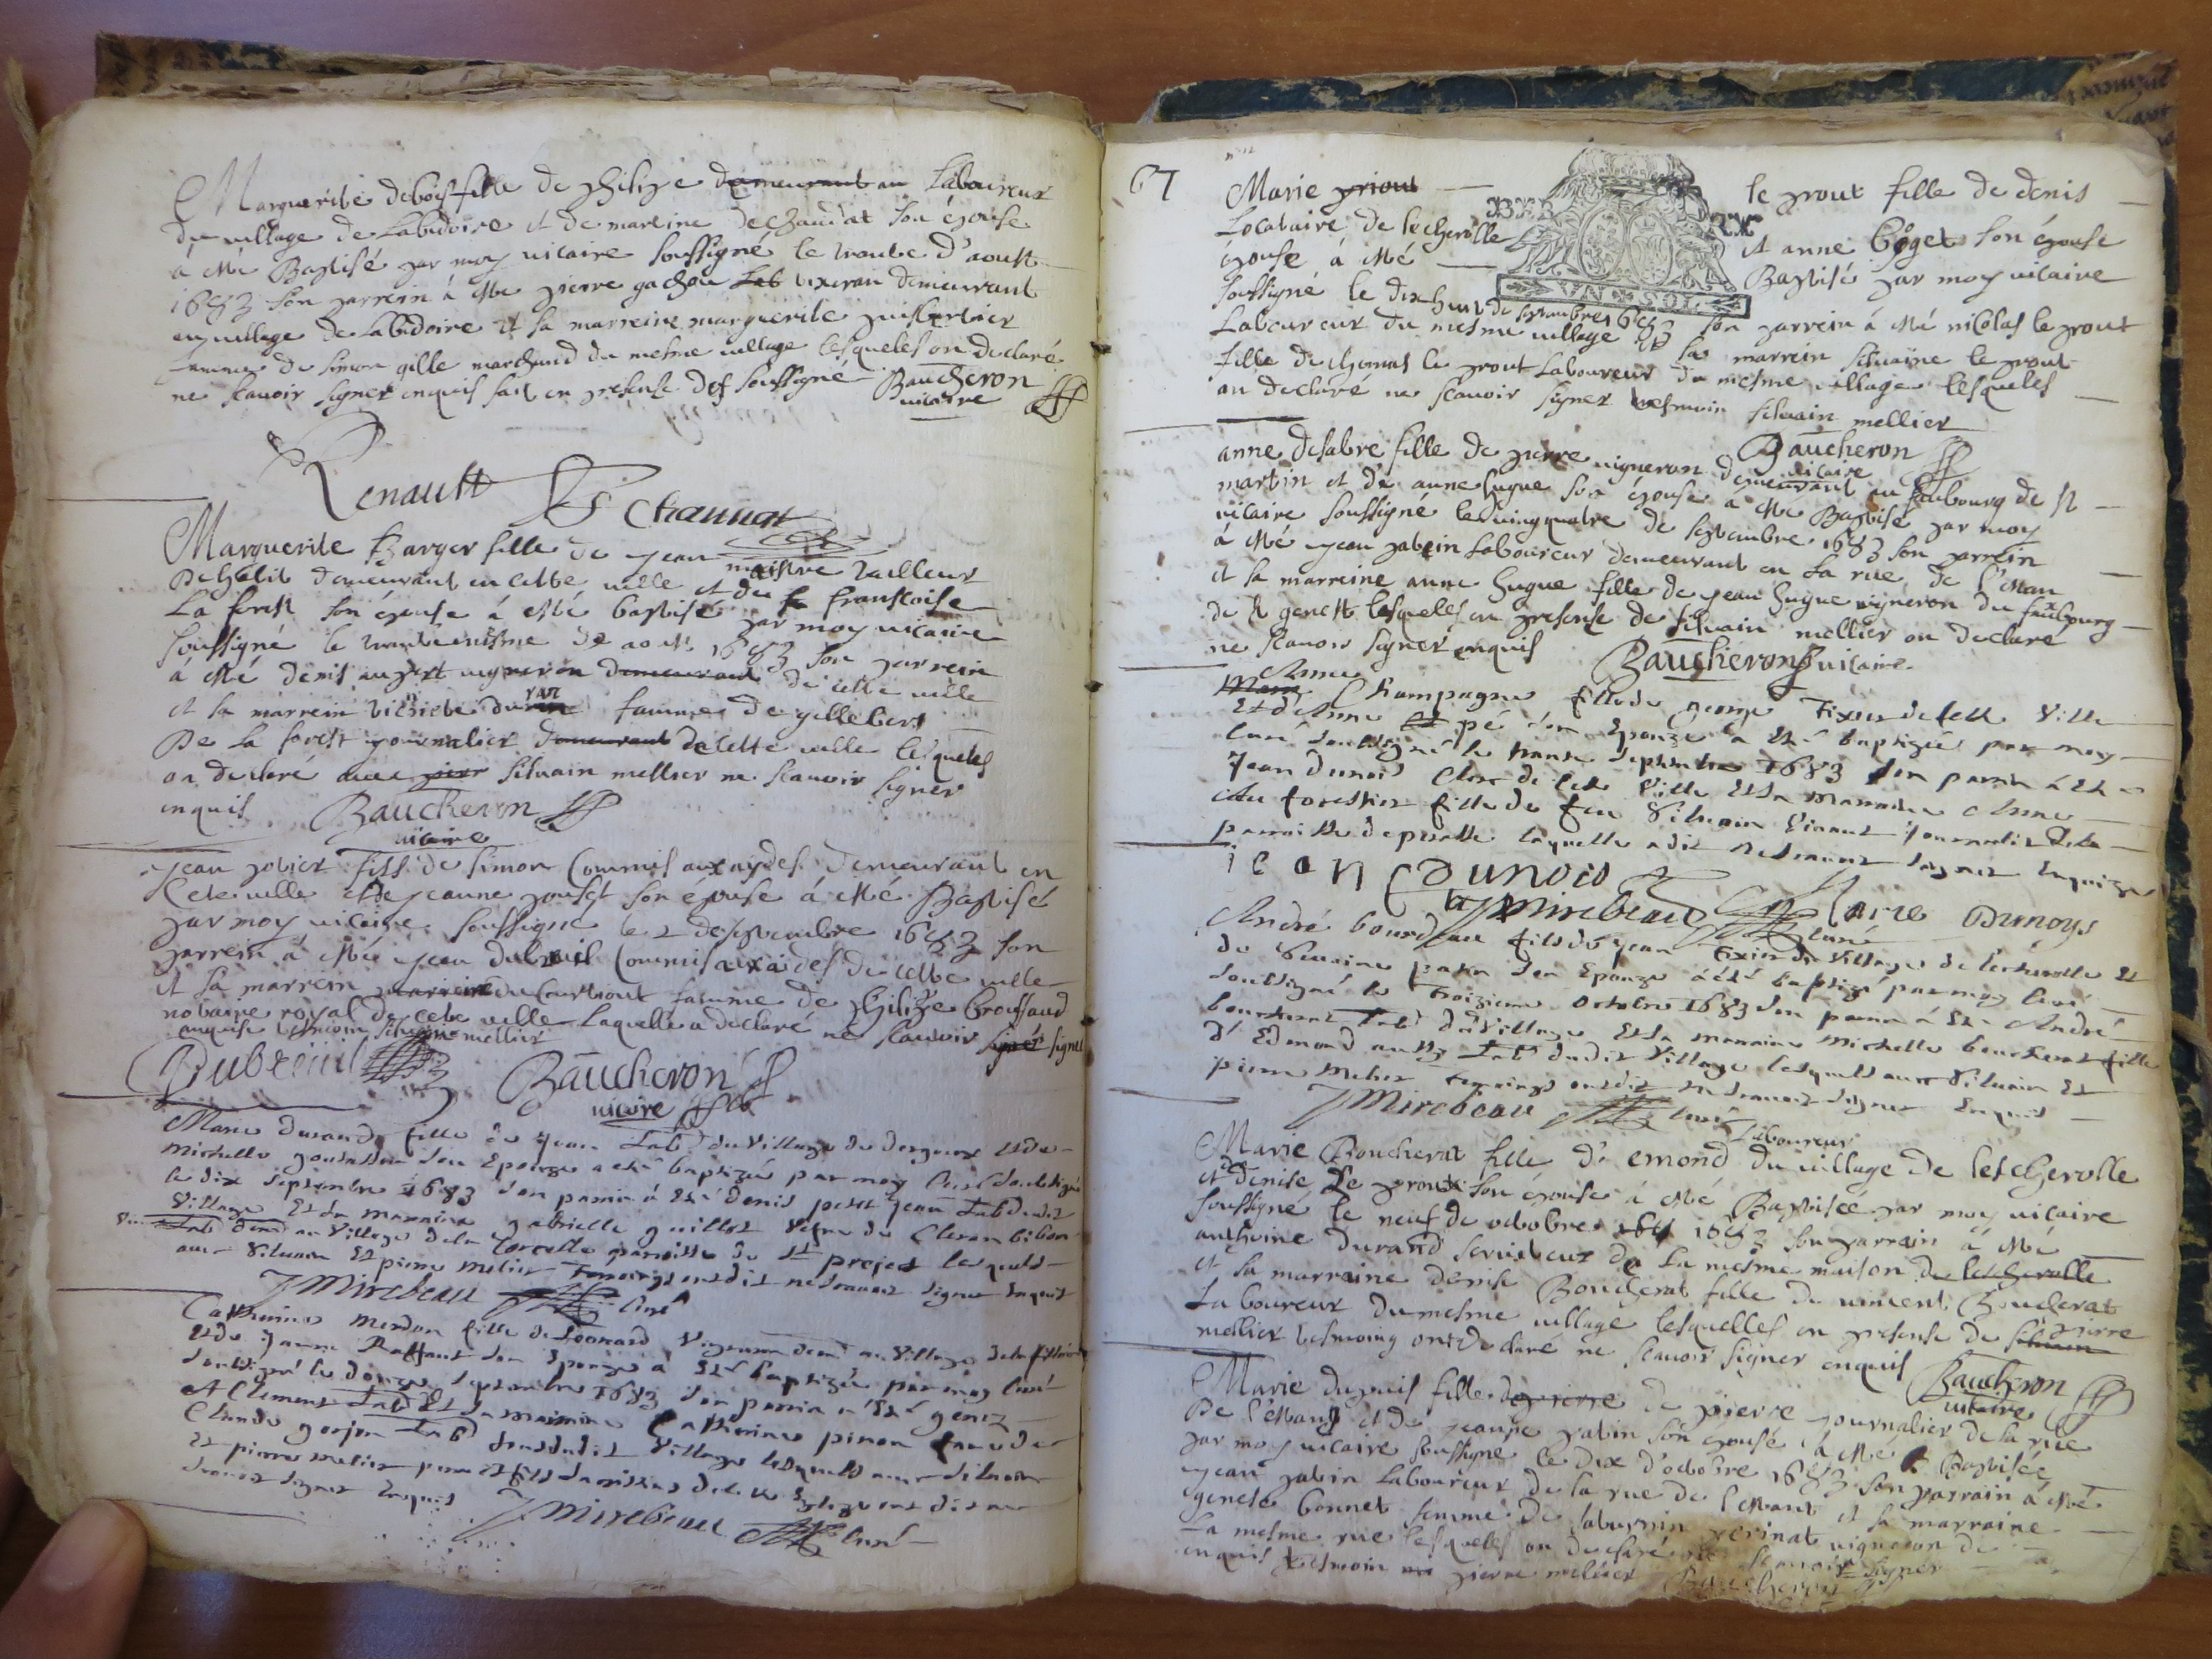 Marguerite debost fille de philipe demeurant au Laboureur
du village de Labidoire et de martine dechaudat son épouse
à esté Baptisé par moy vicaire soussigné le trante d'aoust
1683 son parrein à este pierre gachou Lab tixeran demeurant
au village de Labidoire et sa marreine marguerite
femme de simon gille marchand du mesme village lesqueles on declaré
ne scavoir signer enquis fait en presense des soussigné Baucheron
vicaire
Renault Chaunat
Marguerite Barger fille de jean maistre tailleur
Dehabit demeurant en cette ville et de fr franscoise
La forest son épouse à esté baptisé par moy vicaire
soussigné le trante unisme de aoust 1683 son parrein
à esté denis augert vigneron demeurant de cette ville
et sa marrein duran famme de gillebert
De la forest journalier demeurant de cette ville lesqueles
on declaré avec pier silvain mellier ne scavoir signer
enquis Baucheron
vicaire
jean fils de simon Commis aux aydes demeurant en
Cete ville et de jeanne pouset son épouse à esté Baptisé
par moy vicaire soussigné le 2 de septembre 1683 son
parrein à esté jean dubreuil Commis aux aides de cette ville
et sa marrein famme de philipe Broussaud
notaire royal de cete ville laquelle a declaré ne scavoir signer signer
enquise tesmoin silvain mellier
Dubreuil Baucheron
vicaire
Marie durand fille de jean Lab du village de et de
michelle son Epouze a esté baptizée par moy Curé soubsigné
le dix septembre 1683 son parrin à Esté denis petit jean Lab dudit
village Et sa marraine gabrielle guillot vefve de Cleran bibon
Lab dem au village dela Corcelle parroisse de St project lesquels
avec silvain Et pierre melier Temoings ont dit ne scavoir signer Enquis
J Mirebeau Curé
Catherine merdon fille de Leonard Vigneron dem au village
Et de janne Raffaut son Epouze à Esté baptizée par moy Curé
soubsigné le douze septembre 1683 son parrin a Esté genez
A Clement Lab Et sa marraine Catherine pinon femme de
Claude gorjon Lab tous dudit village lesquels avec silvain
Et pierre melier pere Et fils sacristins de cette Esglize ont dit ne
scavoir signer Enquis J Mirebeau Curé
67
Marie priout le prout fille de denis
Locataire de lecherolle et anne Boget son épouse
épouse à esté Baptisé par moy vicaire
UN SOL
soussigné le dix huit de septambre 1683 son parrein à esté nicolas le prout
Laboureur du mesme village et sa marrein silvaine le prout
fille de thomas le prout Laboureur du mesme village lesqueles
on declaré ne scavoir signer tesmoin silvain mellier
Baucheron
vicaire
anne desabre fille de pierre vigneron demeurant au faubourg de St
martin et de anne hugue son épouse a este Baptisé par moy
vicaire soussigné le vingquatre de septambre 1683 son parrein
à esté jean patein Laboureur demeurant en La rue de l'estan
et sa marreine anne hugue fille de jean hugue vigneron du fauxbourg
de St genest lesqueles en presense de silvain mellier on declaré
ne scavoir signer enquis Baucheron vicaire
Anne
Marie Champagne fille de george Tixier de cette Ville
Et d'Anne pé son Epouze a Esté baptizée par moy
Curé soubsigné le trante septembre 1683 son parrin à Esté
Jean dunois Clerc de cette Ville Et sa marraine Anne
forestier fille de feu silvain vivant journalier dela
parroisse depuralle laquelle a dit ne scavoir signer Enquize
iean Dunois
J Mirebeau Curé Marie Dunoys
André bourdeau fils de jean Tixier du village de lecherolle Et
de silvaine son Epouze a esté baptizé par moy Curé
soubsigné le Troizieme octobre 1683 son parrin a Esté André
boucherat Lab dudit village Et sa marraine michelle boucherat fille
d'Edmond aussy Lab dudit village lesquels avec silvain Et
pierre melier Temoings ont dit ne scavoir signer Enquis
J Mirebeau Curé
Laboureur
Marie Boucherat fille d'emond du village de lescherolle
et denise Le prout son épouse à esté Baptisée par moy vicaire
soussigné le neuf de octobre 164 1683 son parrain à esté
anthoine durand serviteur de La mesme maison de lescherolle
et sa marraine denise Boucherat fille de vincent Boucherat
Laboureur du mesme village lesquelles en presense de silvain pierre
mellier tesmoing ont declaré ne scavoir signer enquis Baucheron
vicaire
Marie dupuis fille de pierre de pierre journalier de la rue
De l'estang et de jeanne patin son épouse à esté Baptisée
par moy vicaire soussigné le dix d'octobre 1683 son parrain à esté
jean patin Laboureur de la rue de l'estant et sa marraine
genete bonnet femme de saturnin perinat vigneron de
La mesme rue lesqueles on declaré ne scavoir signer
enquis tesmoin pierre melier Baucheron